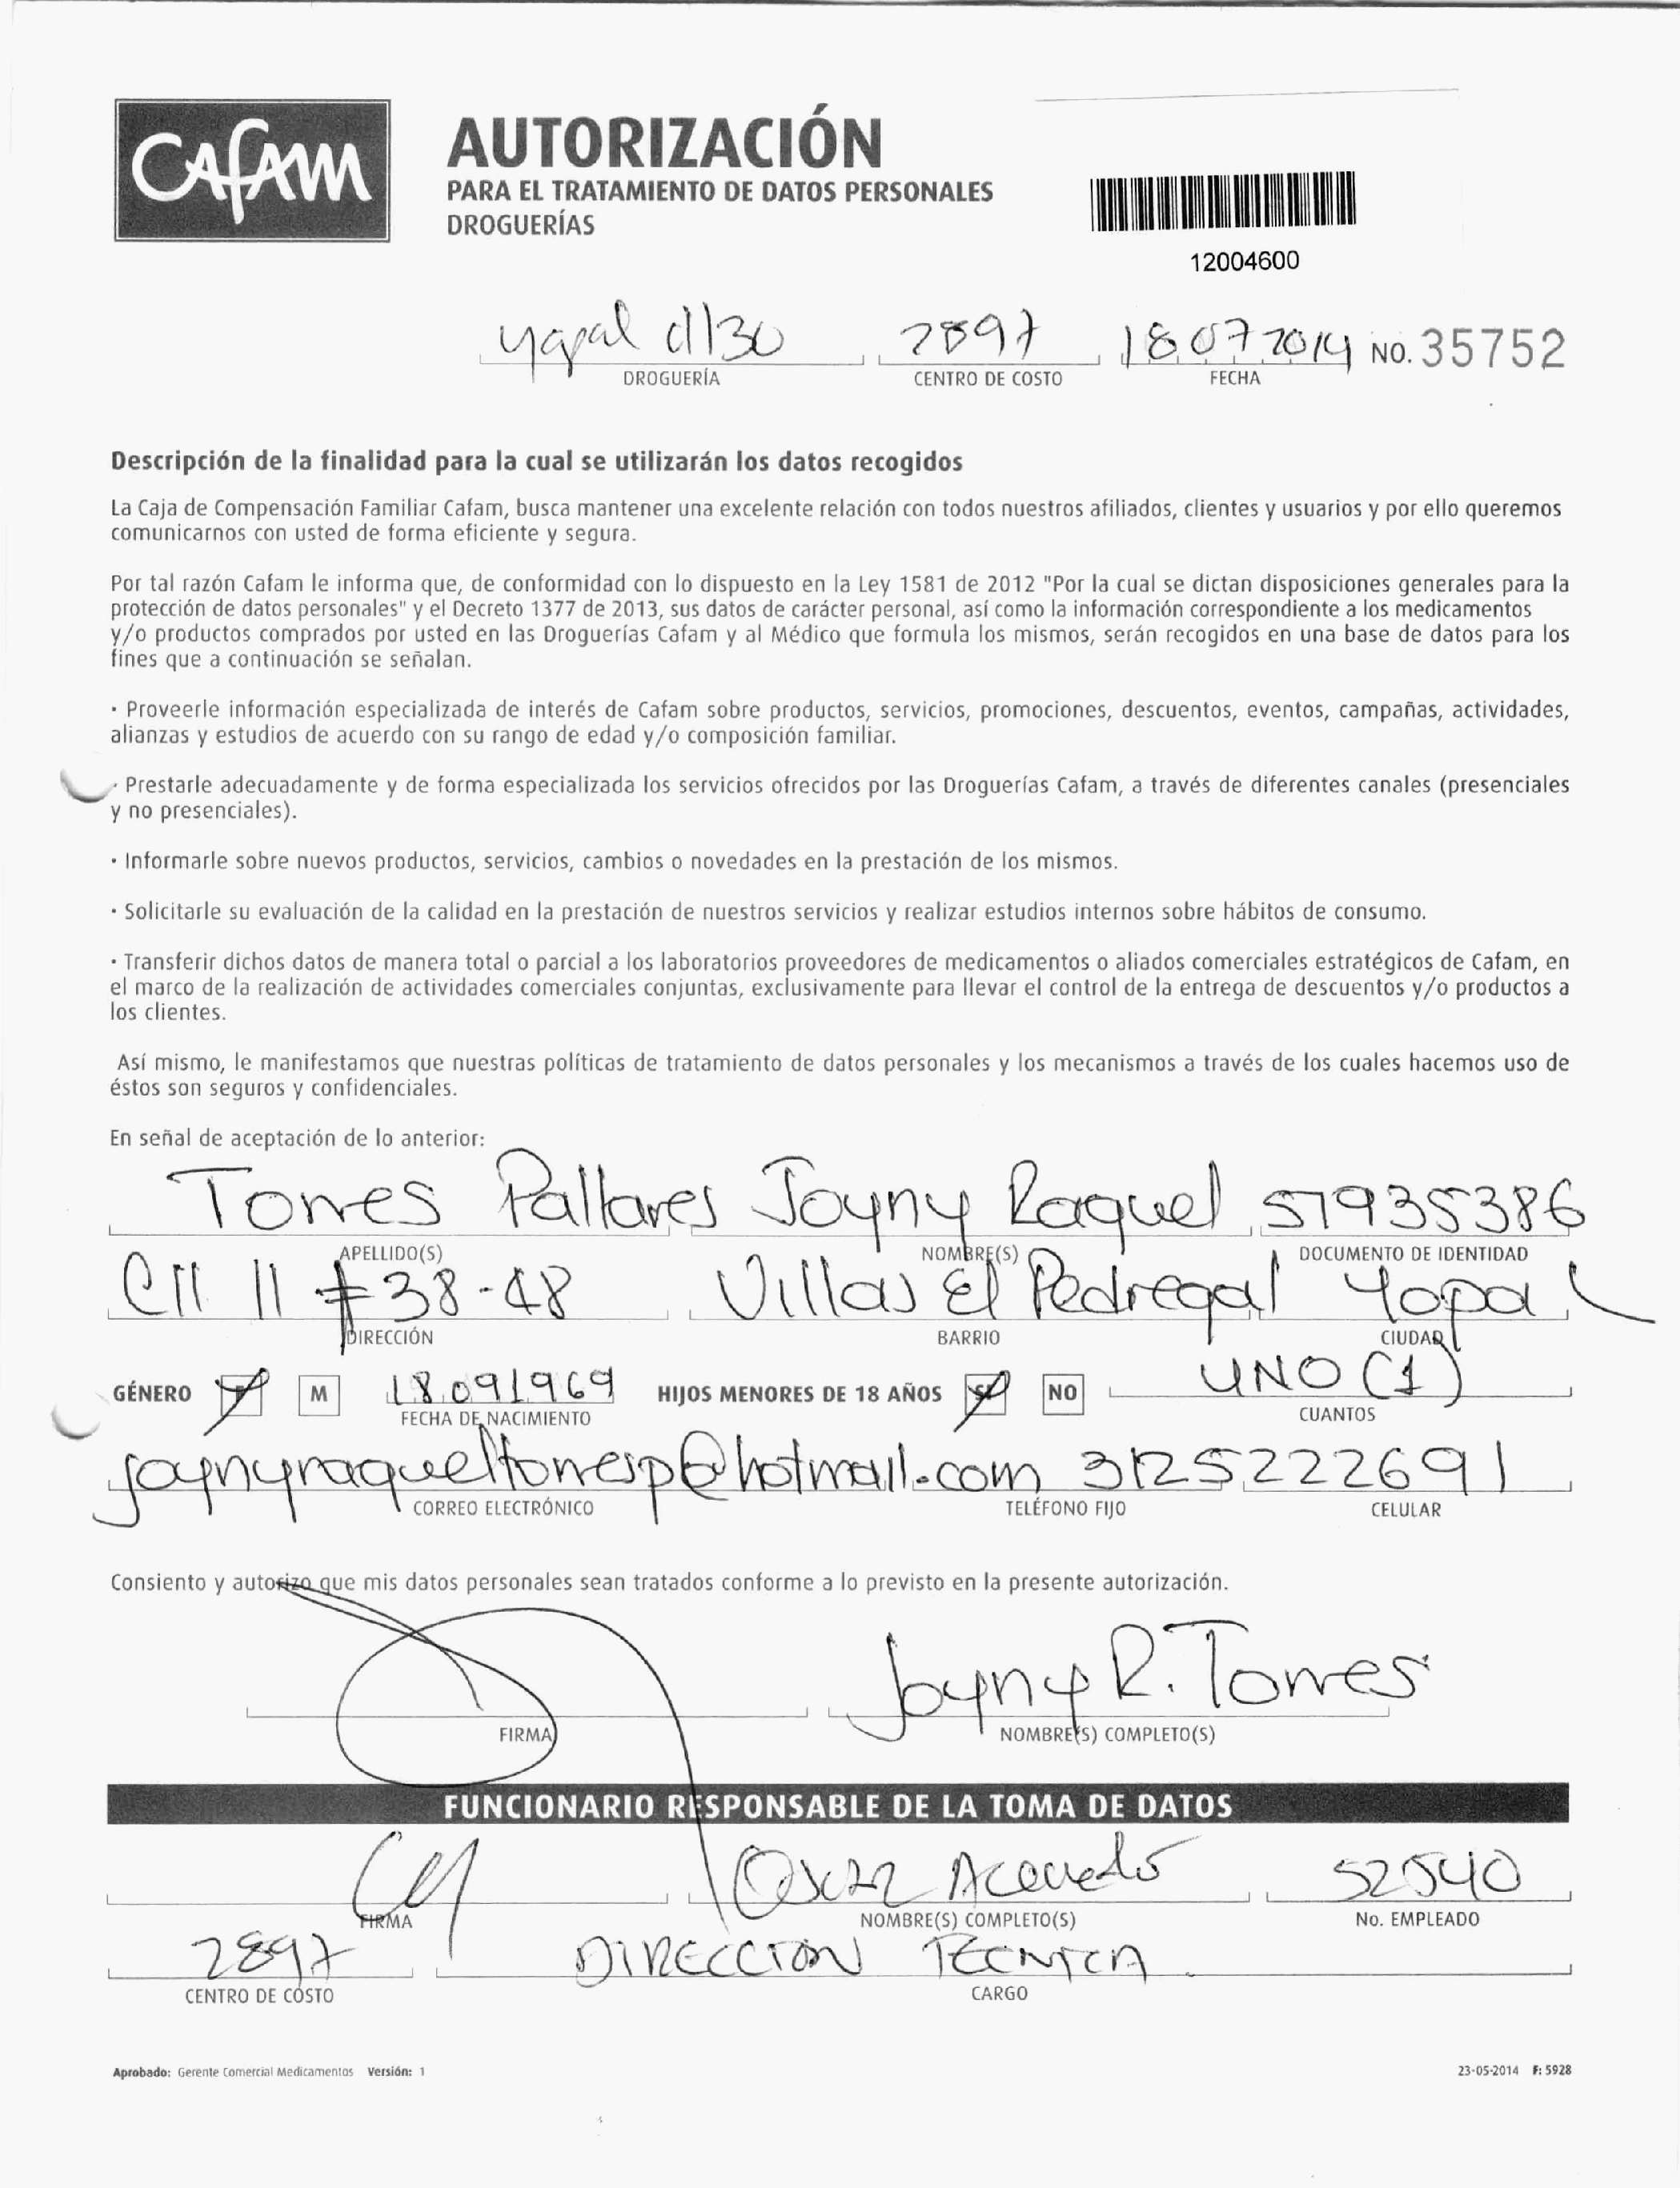 CAFAM
AUTORIZACIÓN
PARA EL TRATAMIENTO DE DATOS PERSONALES
DROGUERÍAS
12004600
yopal cll30 2897 18072014 NO. 35752
DROGUERÍA CENTRO DE COSTO FECHA
Descripción de la finalidad para la cual se utilizarán los datos recogidos
La Caja de Compensación Familiar Cafam, busca mantener una excelente relación con todos nuestros afiliados, clientes y usuarios y por ello queremos
comunicarnos con usted de forma eficiente y segura.
Por tal razón Cafam le informa que, de conformidad con lo dispuesto en la Ley 1581 de 2012 "Por la cual se dictan disposiciones generales para la
protección de datos personales" y el Decreto 1377 de 2013, sus datos de carácter personal, así como la información correspondiente a los medicamentos
y/o productos comprados por usted en las Droguerías Cafam y al Médico que formula los mismos, serán recogidos en una base de datos para los
fines que a continuación se señalan.
· Proveerle información especializada de interés de Cafam sobre productos, servicios, promociones, descuentos, eventos, campañas, actividades,
alianzas y estudios de acuerdo con su rango de edad y/o composición familiar.
· Prestarle adecuadamente y de forma especializada los servicios ofrecidos por las Droguerías Cafam, a través de diferentes canales (presenciales
y no presenciales).
· Informarle sobre nuevos productos, servicios, cambios o novedades en la prestación de los mismos.
· Solicitarle su evaluación de la calidad en la prestación de nuestros servicios y realizar estudios internos sobre hábitos de consumo.
· Transferir dichos datos de manera total o parcial a los laboratorios proveedores de medicamentos o aliados comerciales estratégicos de Cafam, en
el marco de la realización de actividades comerciales conjuntas, exclusivamente para llevar el control de la entrega de descuentos y/o productos a
los clientes.
Así mismo, le manifestamos que nuestras políticas de tratamiento de datos personales y los mecanismos a través de los cuales hacemos uso de
éstos son seguros y confidenciales.
En señal de aceptación de lo anterior:
Torres Pallares Joyny Raquel 51935386
APELLIDO(S) NOMBRE(S) DOCUMENTO DE IDENTIDAD
Cll 11 # 38-48 Villas El Pedregal Yopal
DIRECCIÓN BARRIO CIUDAD
GÉNERO F M 18091969 HIJOS MENORES DE 18 AÑOS SI NO UNO (1)
FECHA DE NACIMIENTO CUANTOS
joynyraqueltorresp@hotmail.com 3125222691
CORREO ELECTRÓNICO TELÉFONO FIJO CELULAR
Consiento y autorizo que mis datos personales sean tratados conforme a lo previsto en la presente autorización.
Joyny R. Torres
FIRMA NOMBRE(S) COMPLETO(S)
FUNCIONARIO RESPONSABLE DE LA TOMA DE DATOS
Oscar Acevedo 52540
FIRMA NOMBRE(S) COMPLETO(S) No. EMPLEADO
2897 DIRECCION TECNICA
CENTRO DE COSTO CARGO
Aprobado: Gerente Comercial Medicamentos Versión: 1 23-05-2014 F: 5928